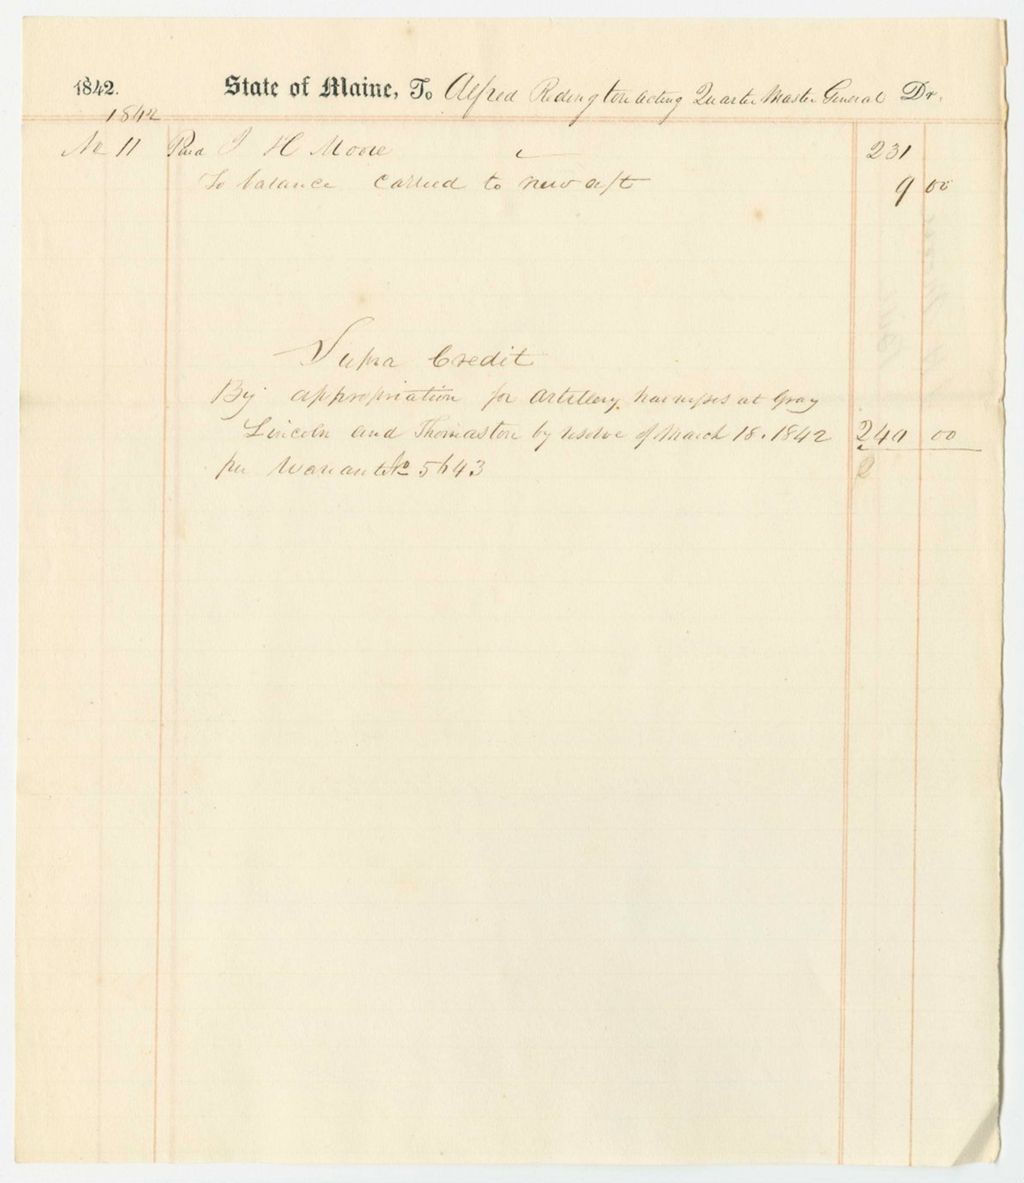 1842. State of Maine, To Alfred Redington Acting Quarter Master General Dr.
1842
No 11 Paid J H Moore 231
To balance carried to new a/c 9 00
Supra Credit
By appropriation for Artillery harnesses at Gray
Lincoln and Thomaston by resolve of March 18. 1842 240 00
per Warrant No 5643